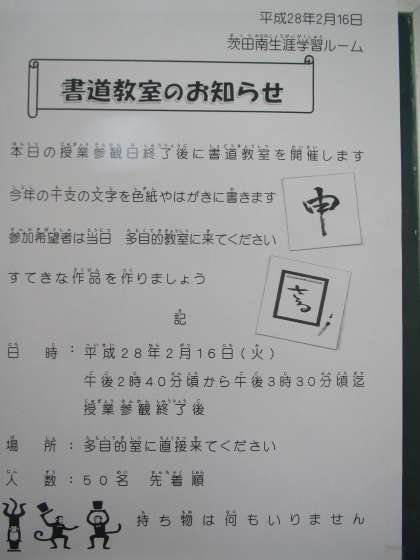 平成28年2月16日
茨田南生涯学習ルーム
書道教室のお知らせ
本日の授業参観日終了後に書道教室を開催します
今年の干支の文字を色紙やはがきに書きます
申
参加希望者は当日 多目的教室に来てください
すてきな作品を作りましょう
さる
記
日時:平成28年2月16日(火)
午後2時40分頃から午後3時30分頃迄
授業参観終了後
場所:多目的室に直接来てください
人数:50名 先着順
持ち物は何もいりません